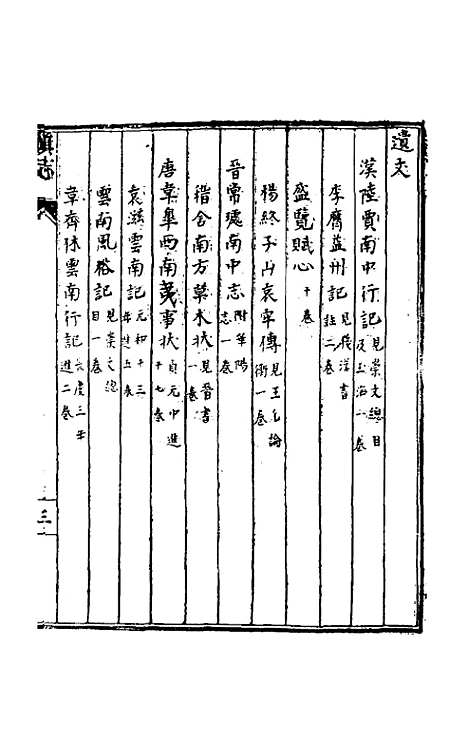 遺文
漢陸賈南中行記見崇文總目及玉海一卷
李膺益州記見後漢書註二卷
盛覽賦心十卷
楊終子山哀牢傳見王充論衡一卷
晉常璩南中志附華陽志一卷
嵇含南方草木狀見晉書一卷
唐韋臯西南夷事狀貞元中進十七卷
袁滋雲南記元和十三年進五卷
雲南風俗記見崇文總目一卷
韋齊休雲南行記長慶三年進二卷
滇志
三